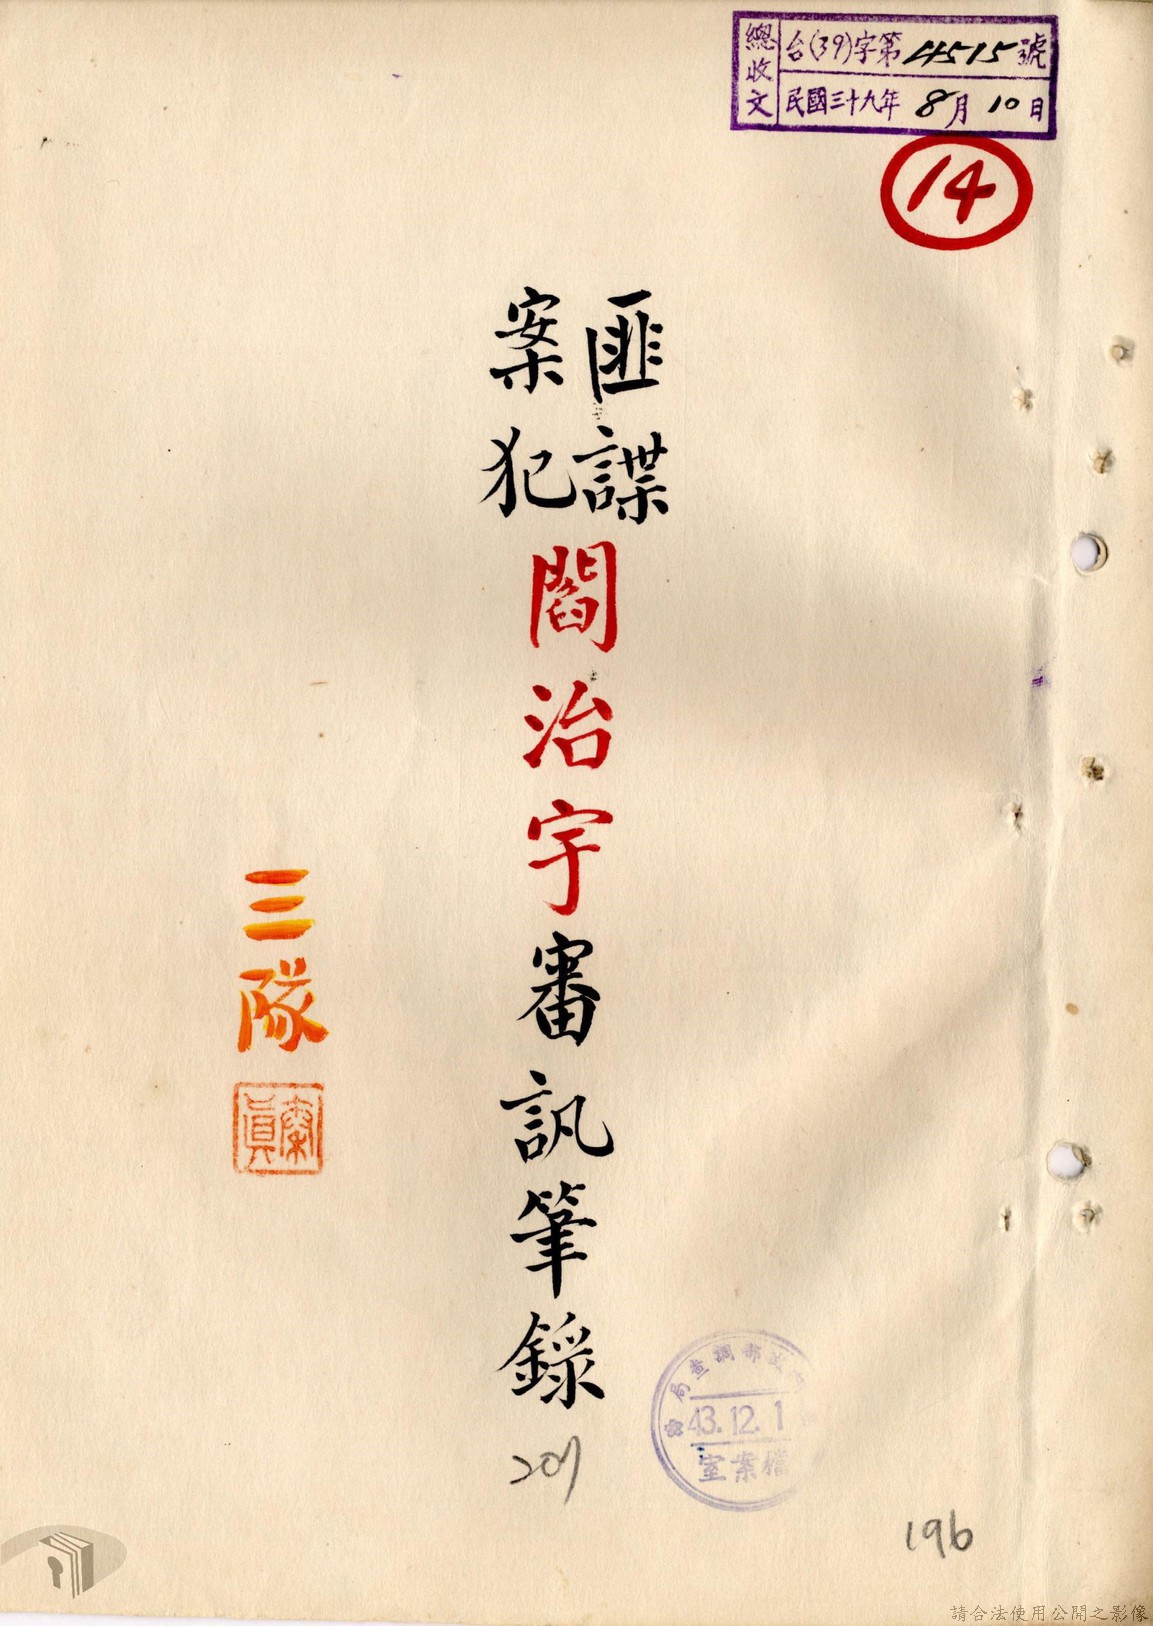 總收文
台(39)字第4515號
民國三十九年8月10日
14
匪諜
案犯
閻治宇審訊筆錄
三隊
秦真
201
調查局
43.12.1
檔案室
196
請合法使用公開之影像